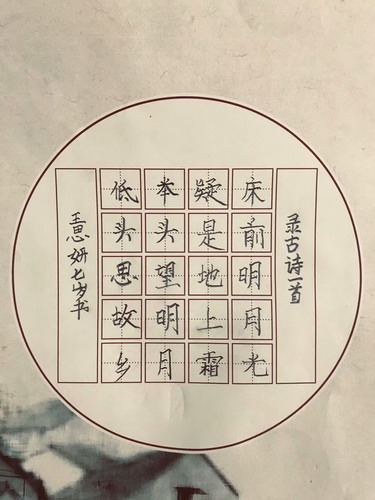 录古诗一首
床前明月光
疑是地上霜
举头望明月
低头思故乡
王思妍七岁书